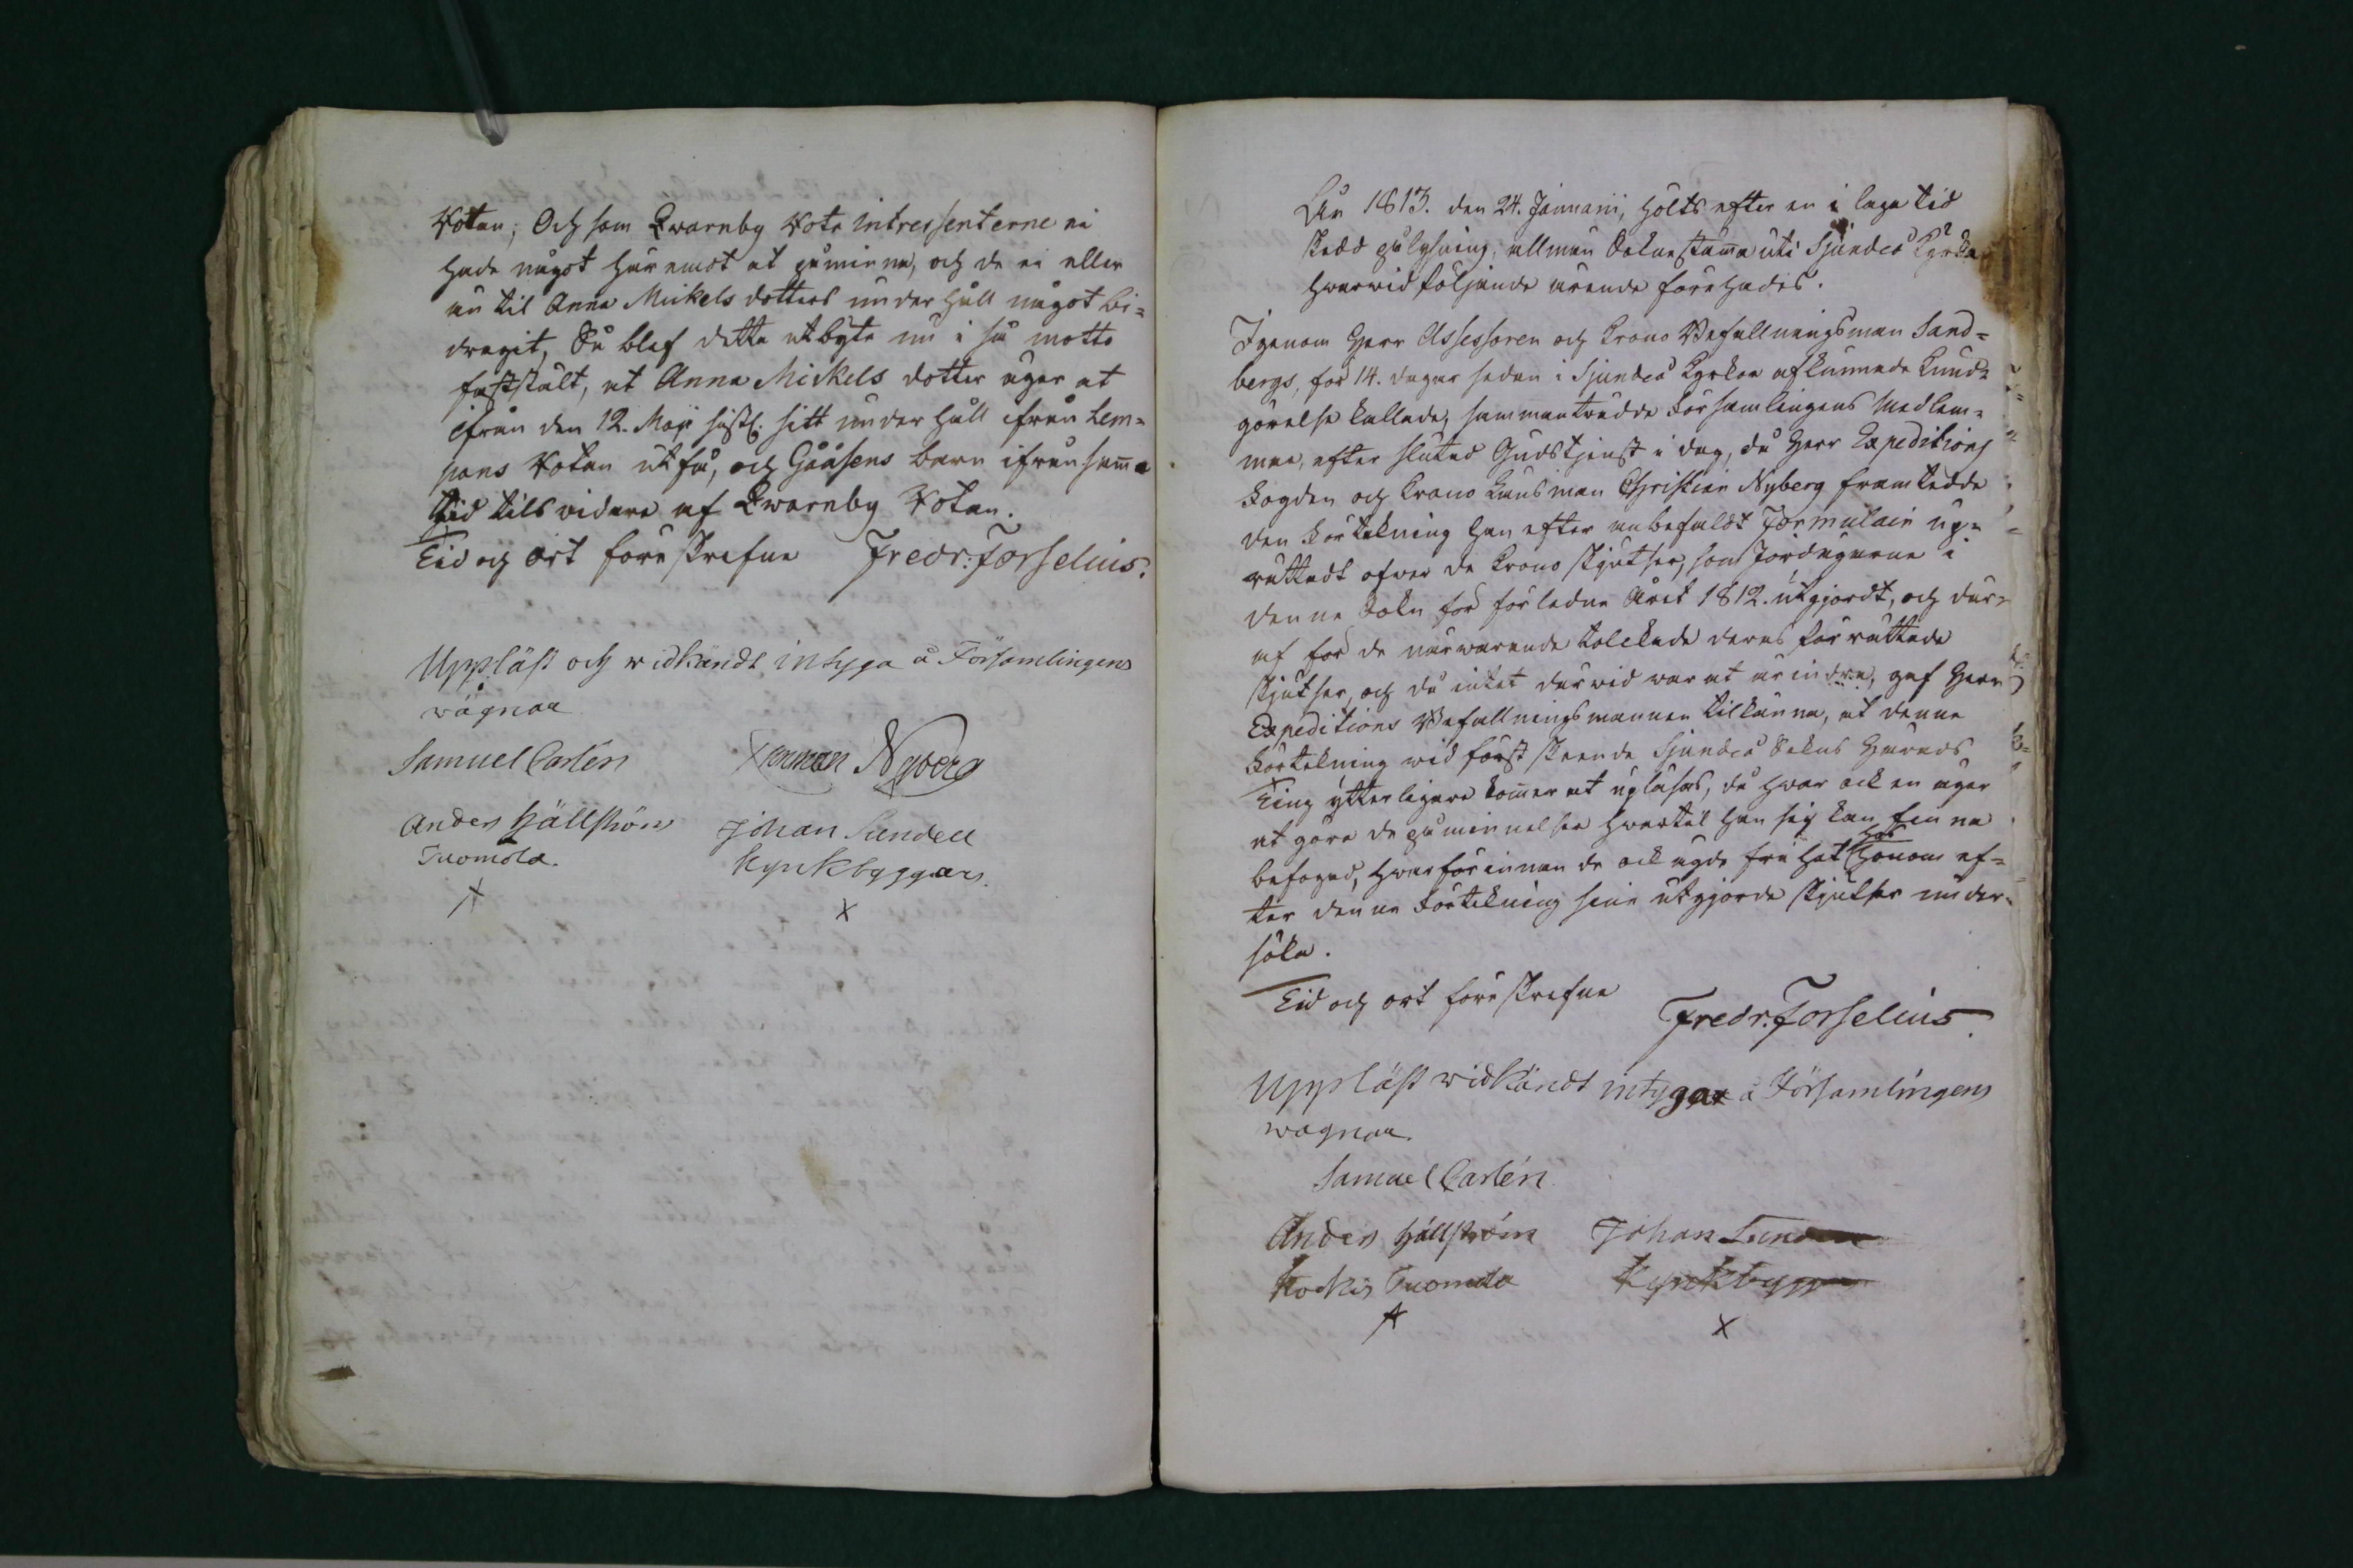 Rotan; Och som Qwarnby Rote intressenterne ei
hade något häremot at påminna, och de ei eller
än til Anna Mickels dotters underhåll något bi-
dragit, Så blef detta utbyte nu i så motto
fastställt, at Anna Mickels dotter äger at
ifrån den 12. Maji sistl. sitt underhåll ifrån Lem-
pans Rotan utfå, och Gååsens barn ifrån samma
tid tils vidare af Qwarnby Rotan.
Tid och ort föreskrefne Fredr: Forselius.
Uppläst och widkändt intyga å Församlingens
wägnar
Samuel Carlén Herman Nyberg
Anders Hällström Johan Sundell
Tuomola. Kyrckbyggars.
X X
År 1813. den 24. Januarii, hölts efter en i laga tid
skedd pålysning, allmän Sokne stämma uti Sjundeå Kyrka
hwarwid följande ärende förehades.
Igenom Herr Assessoren och Krono Befallningsman Sand-
bergs, för 14. dagar sedan i Sjundeå Kyrka afkunnade Kund-
görelse kallade, sammanträdde Församlingens Medlem-
mar, efter slutad Gudstjenst i dag, då Herr Expeditions
Fogden och Krono Länsman Christian Nyberg framtedde
den Förtekning han efter anbefaldt Formulair up-
rättadt öfwer de Krono skjutser, som Jordägarne i
denna Sokn för förledne Året 1812. utgjordt, och der-
af för de närwarande tolckade deras förrättade
skjutser, och då intet derwid war at ärindra, gaf Herr
Expeditions Befallningsmannen tilkänna, at denna
Förtekning wid först skeende Sjundeå Sokns Härads
Ting ytterligare kommer at upläsas, då hwar ock en äger
at göra de påminnelser hwartil han sig kan finna
befogad, hwarförinnan de ock ägde frihet hos honom ef-
ter denna Förtekning sine utgjorde skjutser under-
söka.
Tid och ort föreskrefne
Fredr. Forselius.
Uppläst widkändt intygar å Församlingens
wägnar.
Samuel Carlén
Anders Hällström Johan Sundell
Kockis Tuomola Kyrckbygg
X X